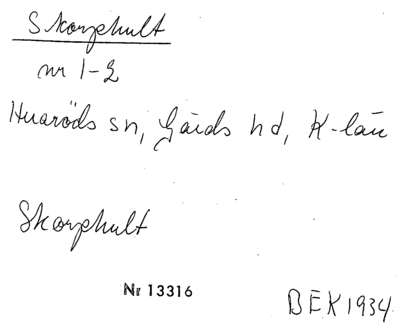 Skorphult
nr 1-2
Huaröds sn, Gärds hd, K-län
Skorphult
Nr 13316
BEK 1934